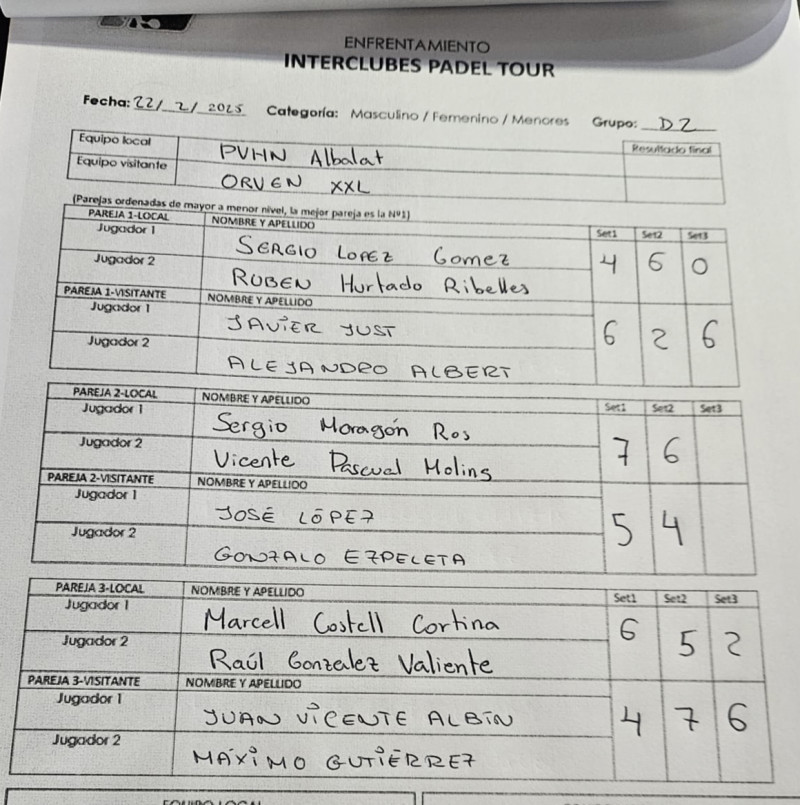 ENFRENTAMIENTO
INTERCLUBES PADEL TOUR
Fecha: 22/2/2025 Categoría: Masculino / Femenino / Menores Grupo: D2
Equipo local PVHN Albalat Resultado final
Equipo visitante ORVEN XXL
(Parejas ordenadas de mayor a menor nivel, la mejor pareja es la Nº1)
PAREJA 1-LOCAL NOMBRE Y APELLIDO Set1 Set2 Set3
Jugador 1 SERGIO LOPEZ Gomez 4 6 0
Jugador 2 RUBEN Hurtado Ribelles
PAREJA 1-VISITANTE NOMBRE Y APELLIDO
Jugador 1 JAViER JUST 6 2 6
Jugador 2 ALEJANDRO ALBERT
PAREJA 2-LOCAL NOMBRE Y APELLIDO Set1 Set2 Set3
Jugador 1 Sergio Moragón Ros 7 6
Jugador 2 Vicente Pascual Molins
PAREJA 2-VISITANTE NOMBRE Y APELLIDO
Jugador 1 JOSÉ LÓPEZ 5 4
Jugador 2 GONZALO EZPELETA
PAREJA 3-LOCAL NOMBRE Y APELLIDO Set1 Set2 Set3
Jugador 1 Marcell Costell Cortina 6 5 2
Jugador 2 Raúl Gonzalez Valiente
PAREJA 3-VISITANTE NOMBRE Y APELLIDO
Jugador 1 JUAN ViCENTE ALBiN 4 7 6
Jugador 2 MÁXiMO GUTiÉRREZ
EQUIPO LOCAL